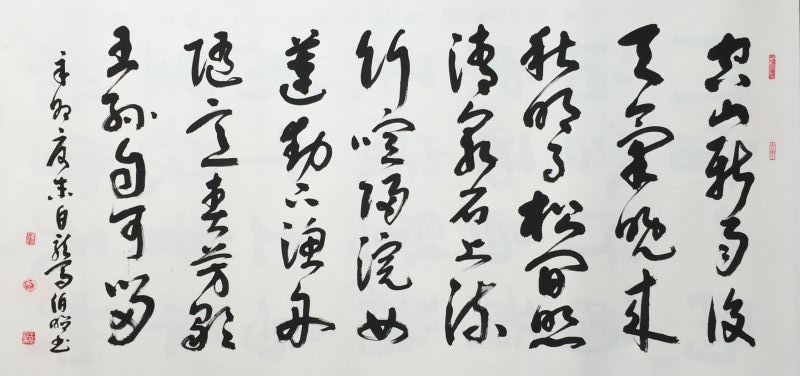 空山新雨後
天氣晚來
秋明月松間照
清泉石上流
竹喧歸浣女
蓮動下漁舟
隨意春芳歇
王孫自可留
辛卯夏